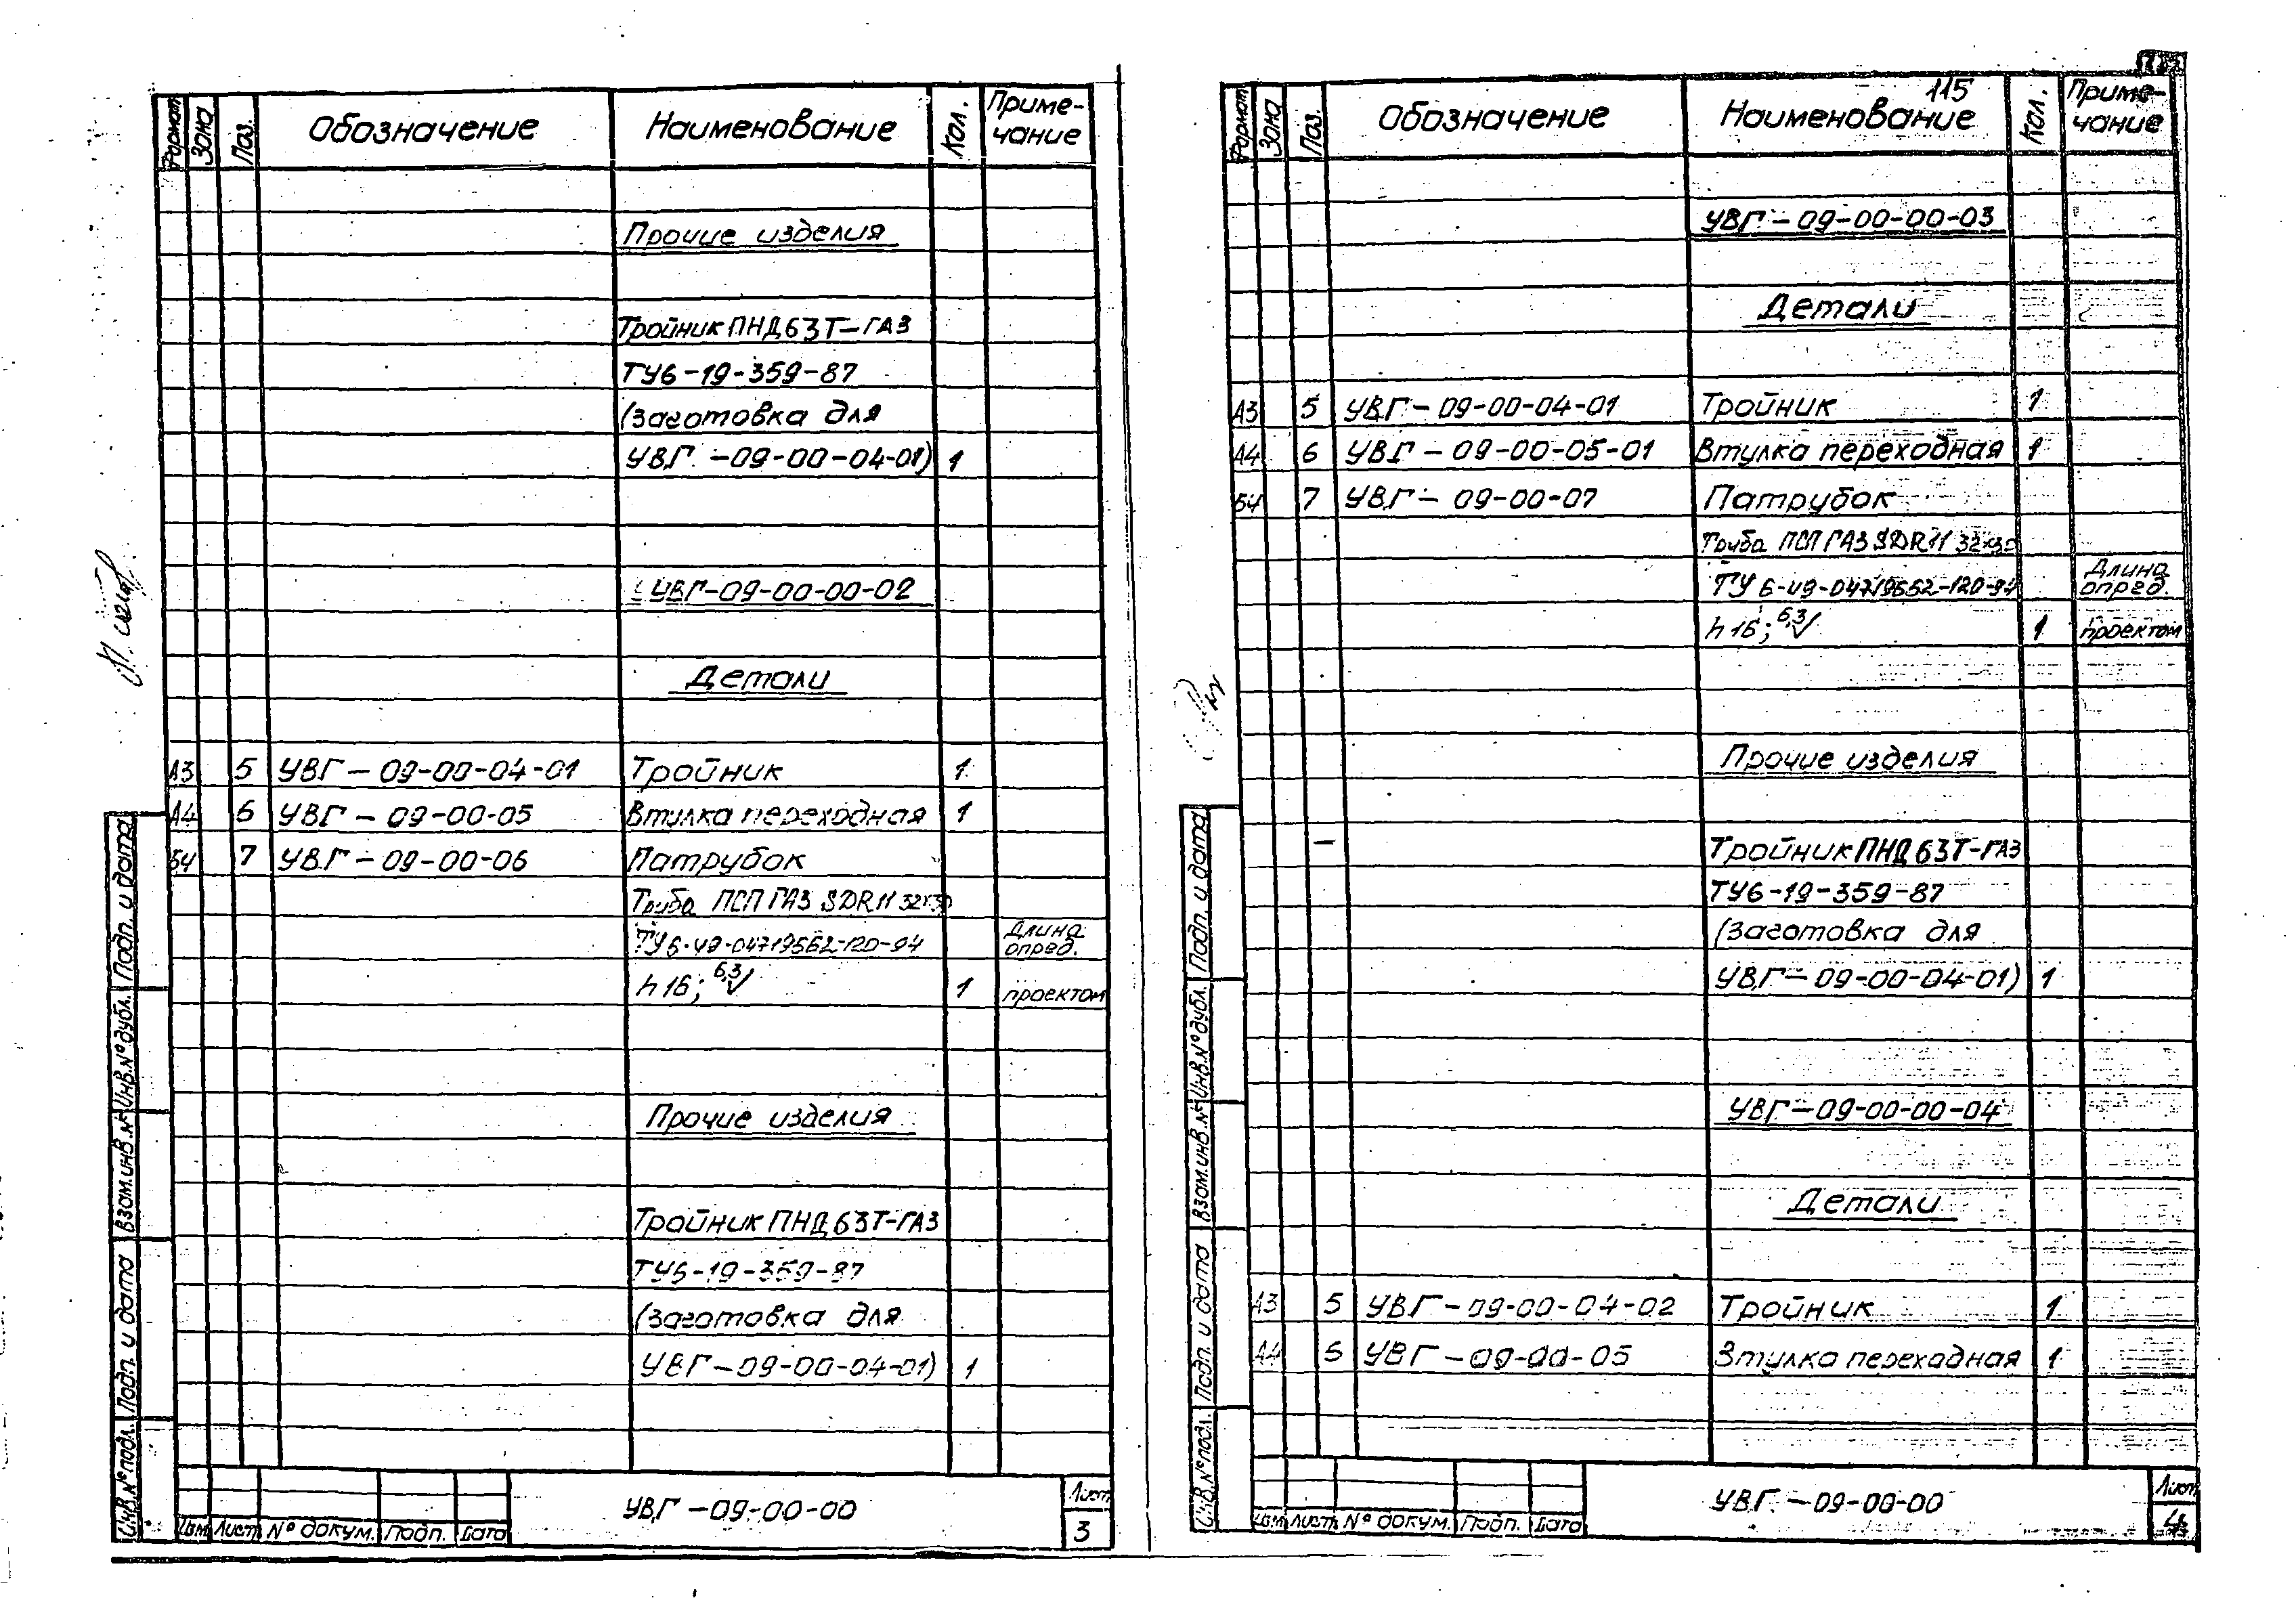 Формат Зона Поз. Обозначение Наименование Кол. Приме-
чание
Прочие изделия
Тройник ПНД 63Т-ГАЗ
ТУ6-19-359-87
(заготовка для
УВГ-09-00-04-01) 1
УВГ-09-00-00-02
Детали
А3 5 УВГ-09-00-04-01 Тройник 1
А4 6 УВГ-09-00-05 Втулка переходная 1
БЧ 7 УВГ-09-00-06 Патрубок
Труба ПСП ГАЗ SDR11
ТУ6-49-04719662-120-94 Длина
опред.
h16; 6,3√ 1 проектом
Прочие изделия
Тройник ПНД 63Т-ГАЗ
ТУ6-19-359-87
(заготовка для
УВГ-09-00-04-01) 1
Инв.№подл. Подп. и дата Взам.инв.№ Инв.№дубл. Подп. и дата
Изм Лист № докум. Подп. Дата
УВГ-09-00-00
Лист
3
115
Формат Зона Поз. Обозначение Наименование Кол. Приме-
чание
УВГ-09-00-00-03
Детали
А3 5 УВГ-09-00-04-01 Тройник 1
А4 6 УВГ-09-00-05-01 Втулка переходная 1
БЧ 7 УВГ-09-00-07 Патрубок
Труба ПСП ГАЗ SDR11
ТУ 6-49-04719662-120-94 Длина
опред.
h16; 6,3√ 1 проектом
Прочие изделия
Тройник ПНД 63Т-ГАЗ
ТУ6-19-359-87
(заготовка для
УВГ-09-00-04-01) 1
УВГ-09-00-00-04
Детали
А3 5 УВГ-09-00-04-02 Тройник 1
А4 6 УВГ-09-00-05 Втулка переходная 1
Инв.№подл. Подп. и дата Взам.инв.№ Инв.№дубл. Подп. и дата
Изм Лист № докум. Подп. Дата
УВГ-09-00-00
Лист
4